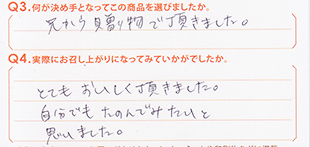 Q3.何が決め手となってこの商品を選びましたか。
兄から貝曽り物で頂きました。
Q4.実際にお召し上がりになってみていかがでしたか。
とてもおいしく頂きました。
自分でもたのんでみたいと
思いました。